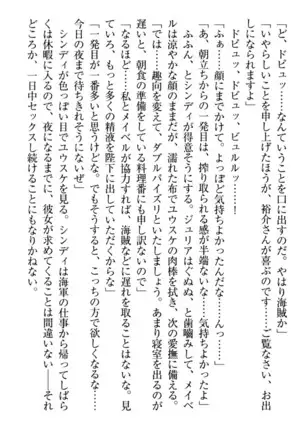 「ど、ドピュッ……なんていうことを口に出すのだ。やはり海賊か」
「いやらしいことを申し上げたほうが、裕介さんが喜ぶのです……ご覧ください、お出
しになられますよ」
　ドビュッ、ドビュッ、ビュルルッ……！
「あっ……顔にまでかけて。よっぽど気持ちよかったんだな……んっ……」
「ふふん、とシンディが得意そうにする。ジュリアはぐぬぬ、と歯噛みして、メイベ
ルは涼やかな顔のままだが、濡れた布でユウスケの肉棒を拭き、次の愛撫に備える。
「では……趣向を変えて、ダブルパイズリといたしましょう。あまり寝室を出るのが
遅いと、朝食の準備をしている料理番にも申し訳ないので」
「なるほど……私とメイベルが協力すれば、海賊などに遅れを取ることはないな。見
ていろ、もっと多くの精液を陛下に出していただくからな」
「一発目が一番多いと思うけどな。でもそうすると、こっちの方で欲しくなるな……
今日の夜まで待ちきれそうにないぜ」
　シンディが色っぽい目でユウスケを見る。シンディは海軍の仕事から帰ってしばら
くは休暇に入るので、夜になるまでに、彼女が求めてくることは間違いない――それ
どころか、一日中セックスし続けることにもなりかねない。